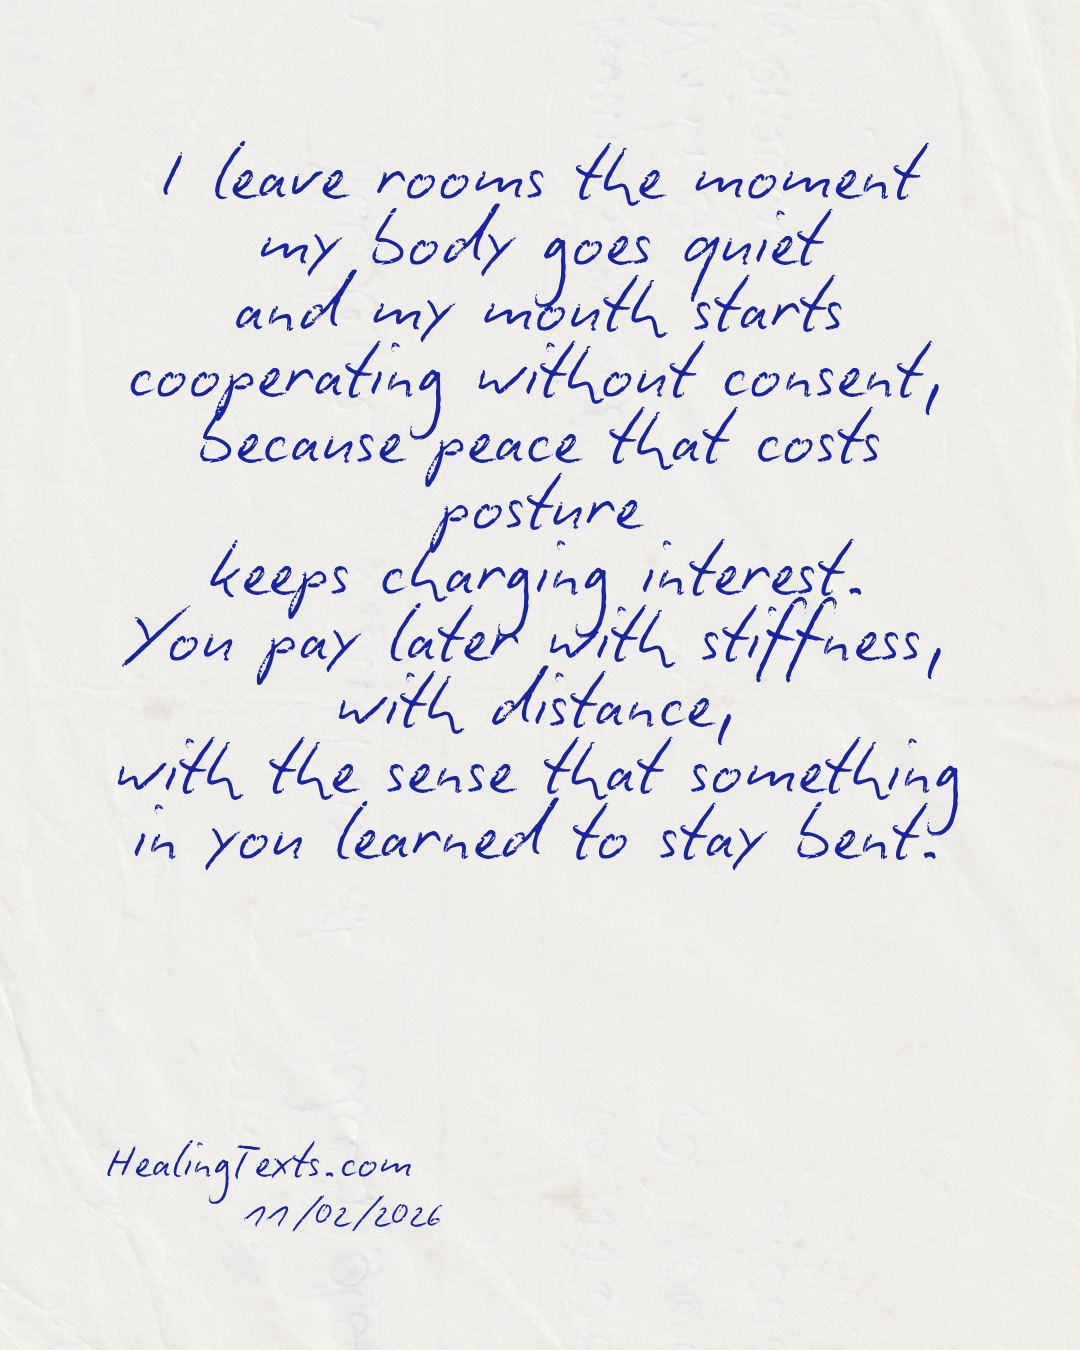 I leave rooms the moment
my body goes quiet
and my mouth starts
cooperating without consent,
because peace that costs
posture
keeps charging interest.
You pay later with stiffness,
with distance,
with the sense that something
in you learned to stay bent.
HealingTexts.com
11/02/2026